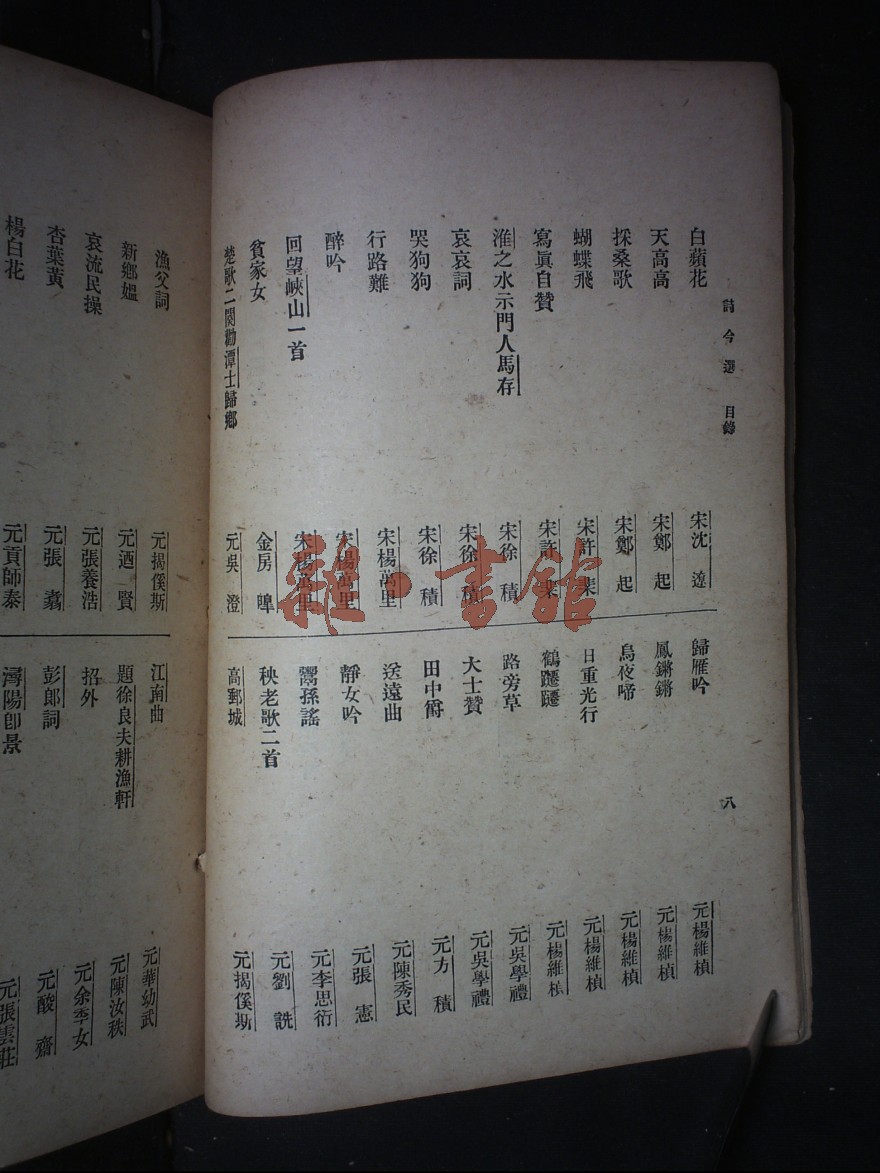 詩今選 目錄 八
白蘋花 宋沈 遼
天高高 宋鄭 起
採桑歌 宋鄭 起
蝴蝶飛 宋許 棐
寫眞自贊 宋許 棐
淮之水示門人馬存 宋徐 積
哀哀詞 宋徐 積
哭狗狗 宋徐 積
行路難 宋楊萬里
醉吟 宋楊萬里
回望峽山一首 宋楊萬里
貧家女 金房 皡
楚歌二閱勸潭士歸鄉 元吳 澄
歸雁吟 元楊維楨
鳳鏘鏘 元楊維楨
烏夜啼 元楊維楨
日重光行 元楊維楨
鶴躚躚 元楊維楨
路旁草 元吳學禮
大士贊 元吳學禮
田中篰 元方 積
送遠曲 元陳秀民
靜女吟 元張 憲
鬻孫謠 元李思衍
秧老歌二首 元劉 詵
高郵城 元揭傒斯
漁父詞 元揭傒斯
新鄉媼 元迺 賢
哀流民操 元張養浩
杏葉黃 元張 翥
楊白花 元貢師泰
江南曲 元華幼武
題徐良夫耕漁軒 元陳汝秩
招外 元余季女
彭郎詞 元酸 齋
潯陽卽景 元張雲莊
雜·書館